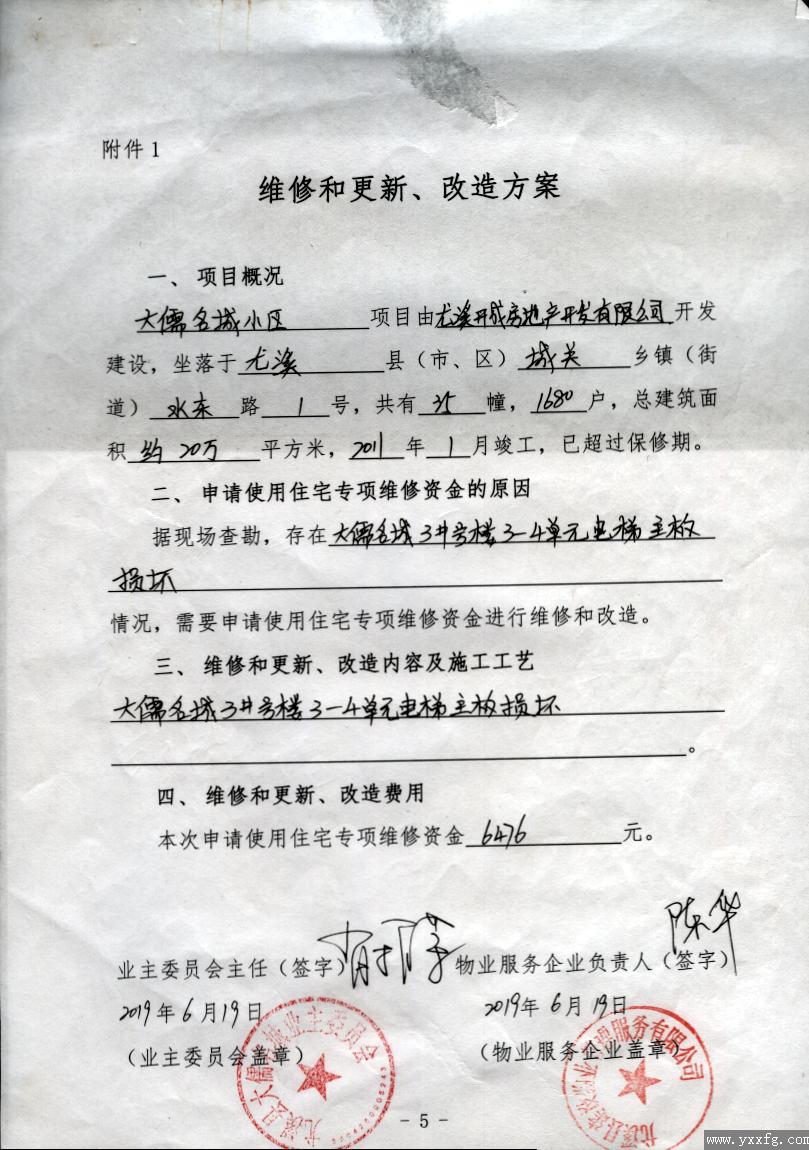 附件1
维修和更新、改造方案
一、项目概况
大儒名城小区 项目由尤溪开成房地产开发有限公司开发
建设，坐落于 尤溪 县（市、区） 城关 乡镇（街
道） 水东 路 1 号，共有 35 幢， 1680 户，总建筑面
积 约20万 平方米， 2011 年 1 月竣工，已超过保修期。
二、申请使用住宅专项维修资金的原因
据现场查勘，存在大儒名城3#号楼3-4单元电梯主板
损坏
情况，需要申请使用住宅专项维修资金进行维修和改造。
三、维修和更新、改造内容及施工工艺
大儒名城3#号楼3-4单元电梯主板损坏
。
四、维修和更新、改造费用
本次申请使用住宅专项维修资金 6476 元。
业主委员会主任（签字） 物业服务企业负责人（签字） 陈华
2019年6月19日 2019年6月19日
（业主委员会盖章） （物业服务企业盖章）
尤溪县大儒名城业主委员会
- 5 -
www.yxxfg.com